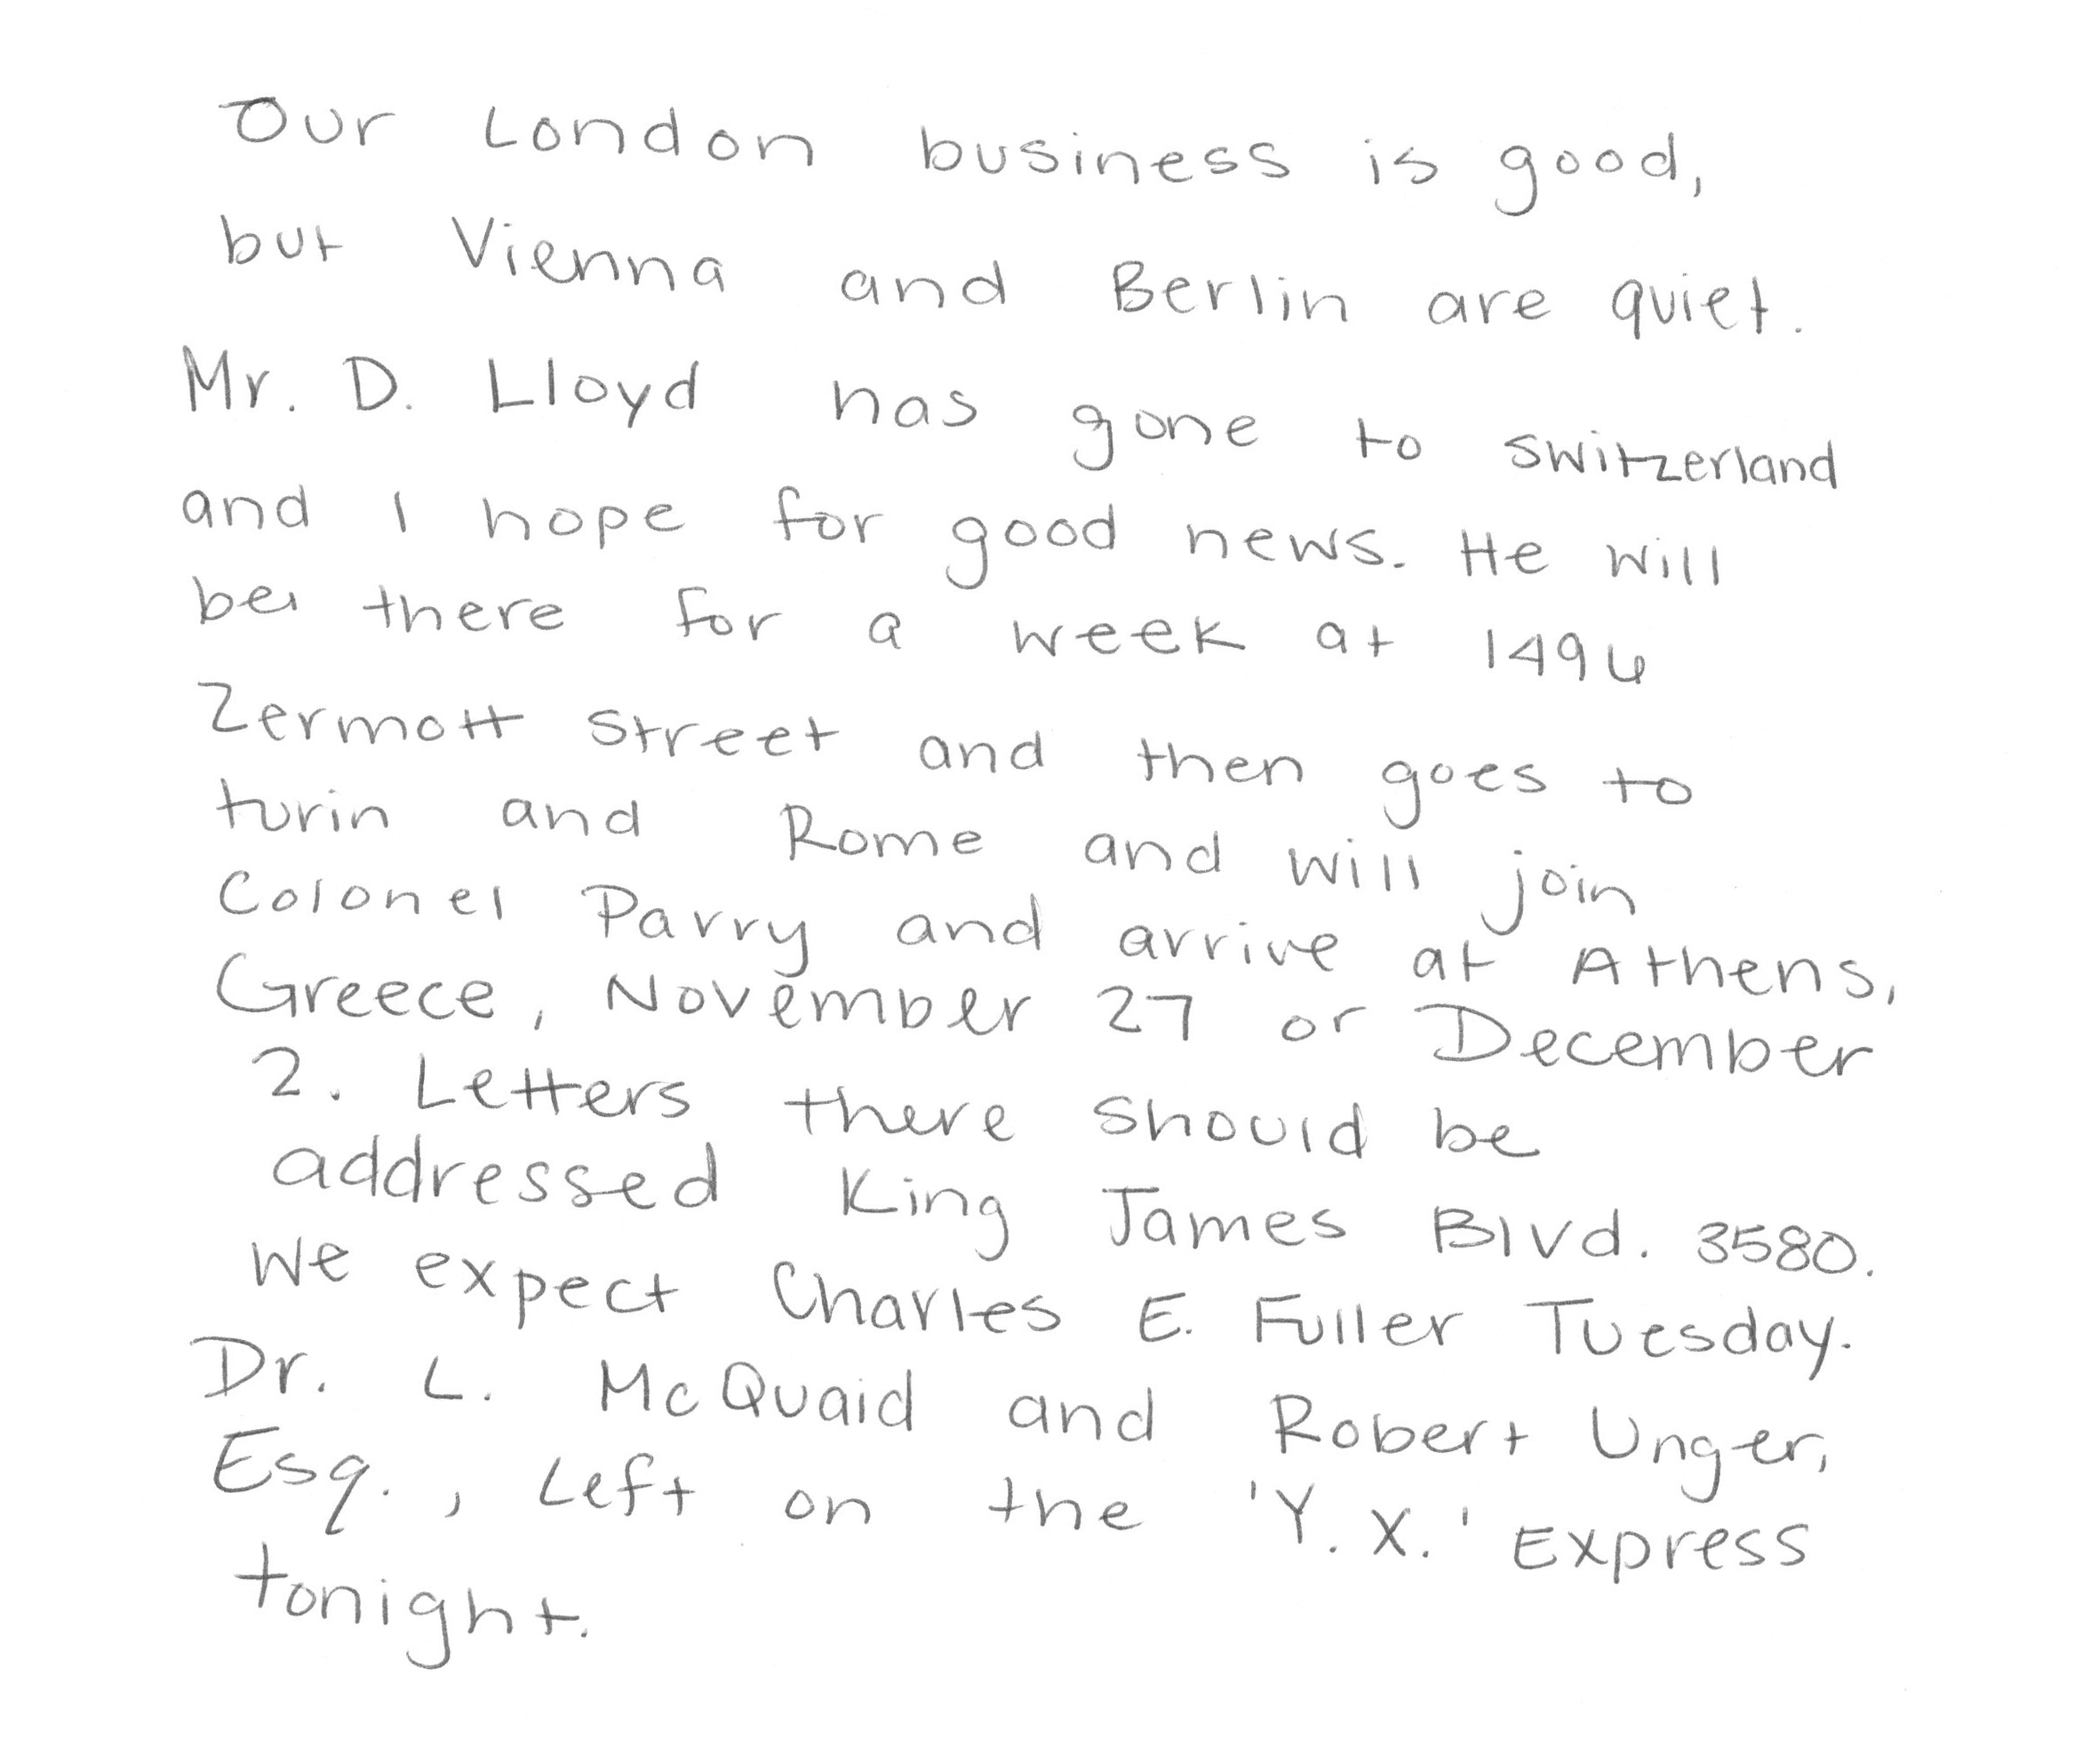 Our London business is good,
but Vienna and Berlin are quiet.
Mr. D. Lloyd has gone to Switzerland
and I hope for good news. He will
be there for a week at 1496
Zermott Street and then goes to
turin and Rome and will join
Colonel Parry and arrive at Athens,
Greece, November 27 or December
2. Letters there should be
addressed King James Blvd. 3580.
We expect Charles E. Fuller Tuesday.
Dr. L. McQuaid and Robert Unger,
Esq., Left on the 'Y. X.' Express
tonight.